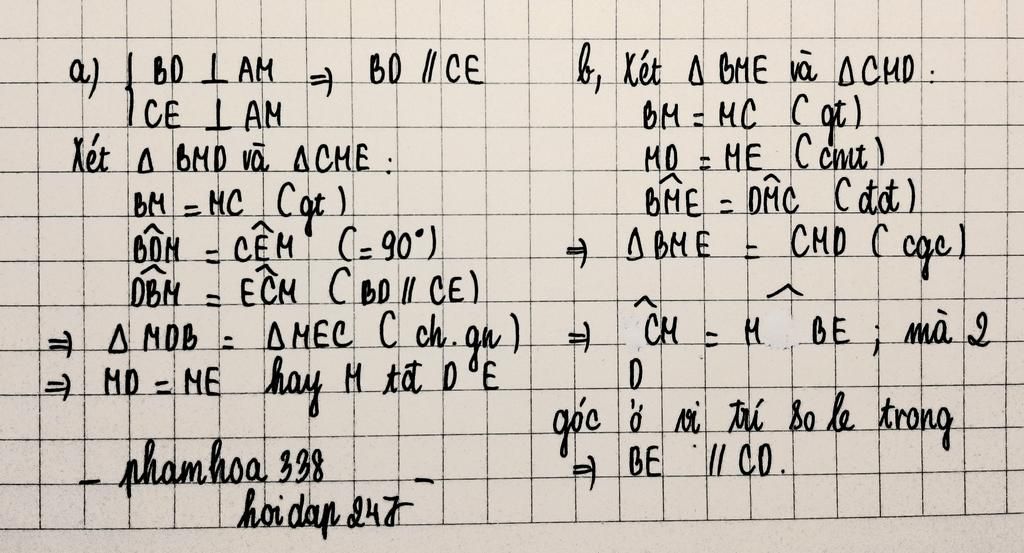 a) { BD ⊥ AM ⇒ BD // CE
CE ⊥ AM
Xét Δ BMD và ΔCME :
BM = MC (gt)
BD̂M = CÊM (= 90°)
DB̂M = EĈM (BD // CE)
⇒ Δ MDB = ΔMEC (ch.gn)
⇒ MD = ME hay M tđ D E
- phamhoa 338 -
hoidap 247
b, Xét Δ BME và ΔCMD :
BM = MC (gt)
MD = ME (cmt)
BM̂E = DM̂C (đđ)
⇒ ΔBME = CMD (cgc)
⇒ ĈM = M̂ BE ; mà 2
D
góc ở vị trí so le trong
⇒ BE // CD.